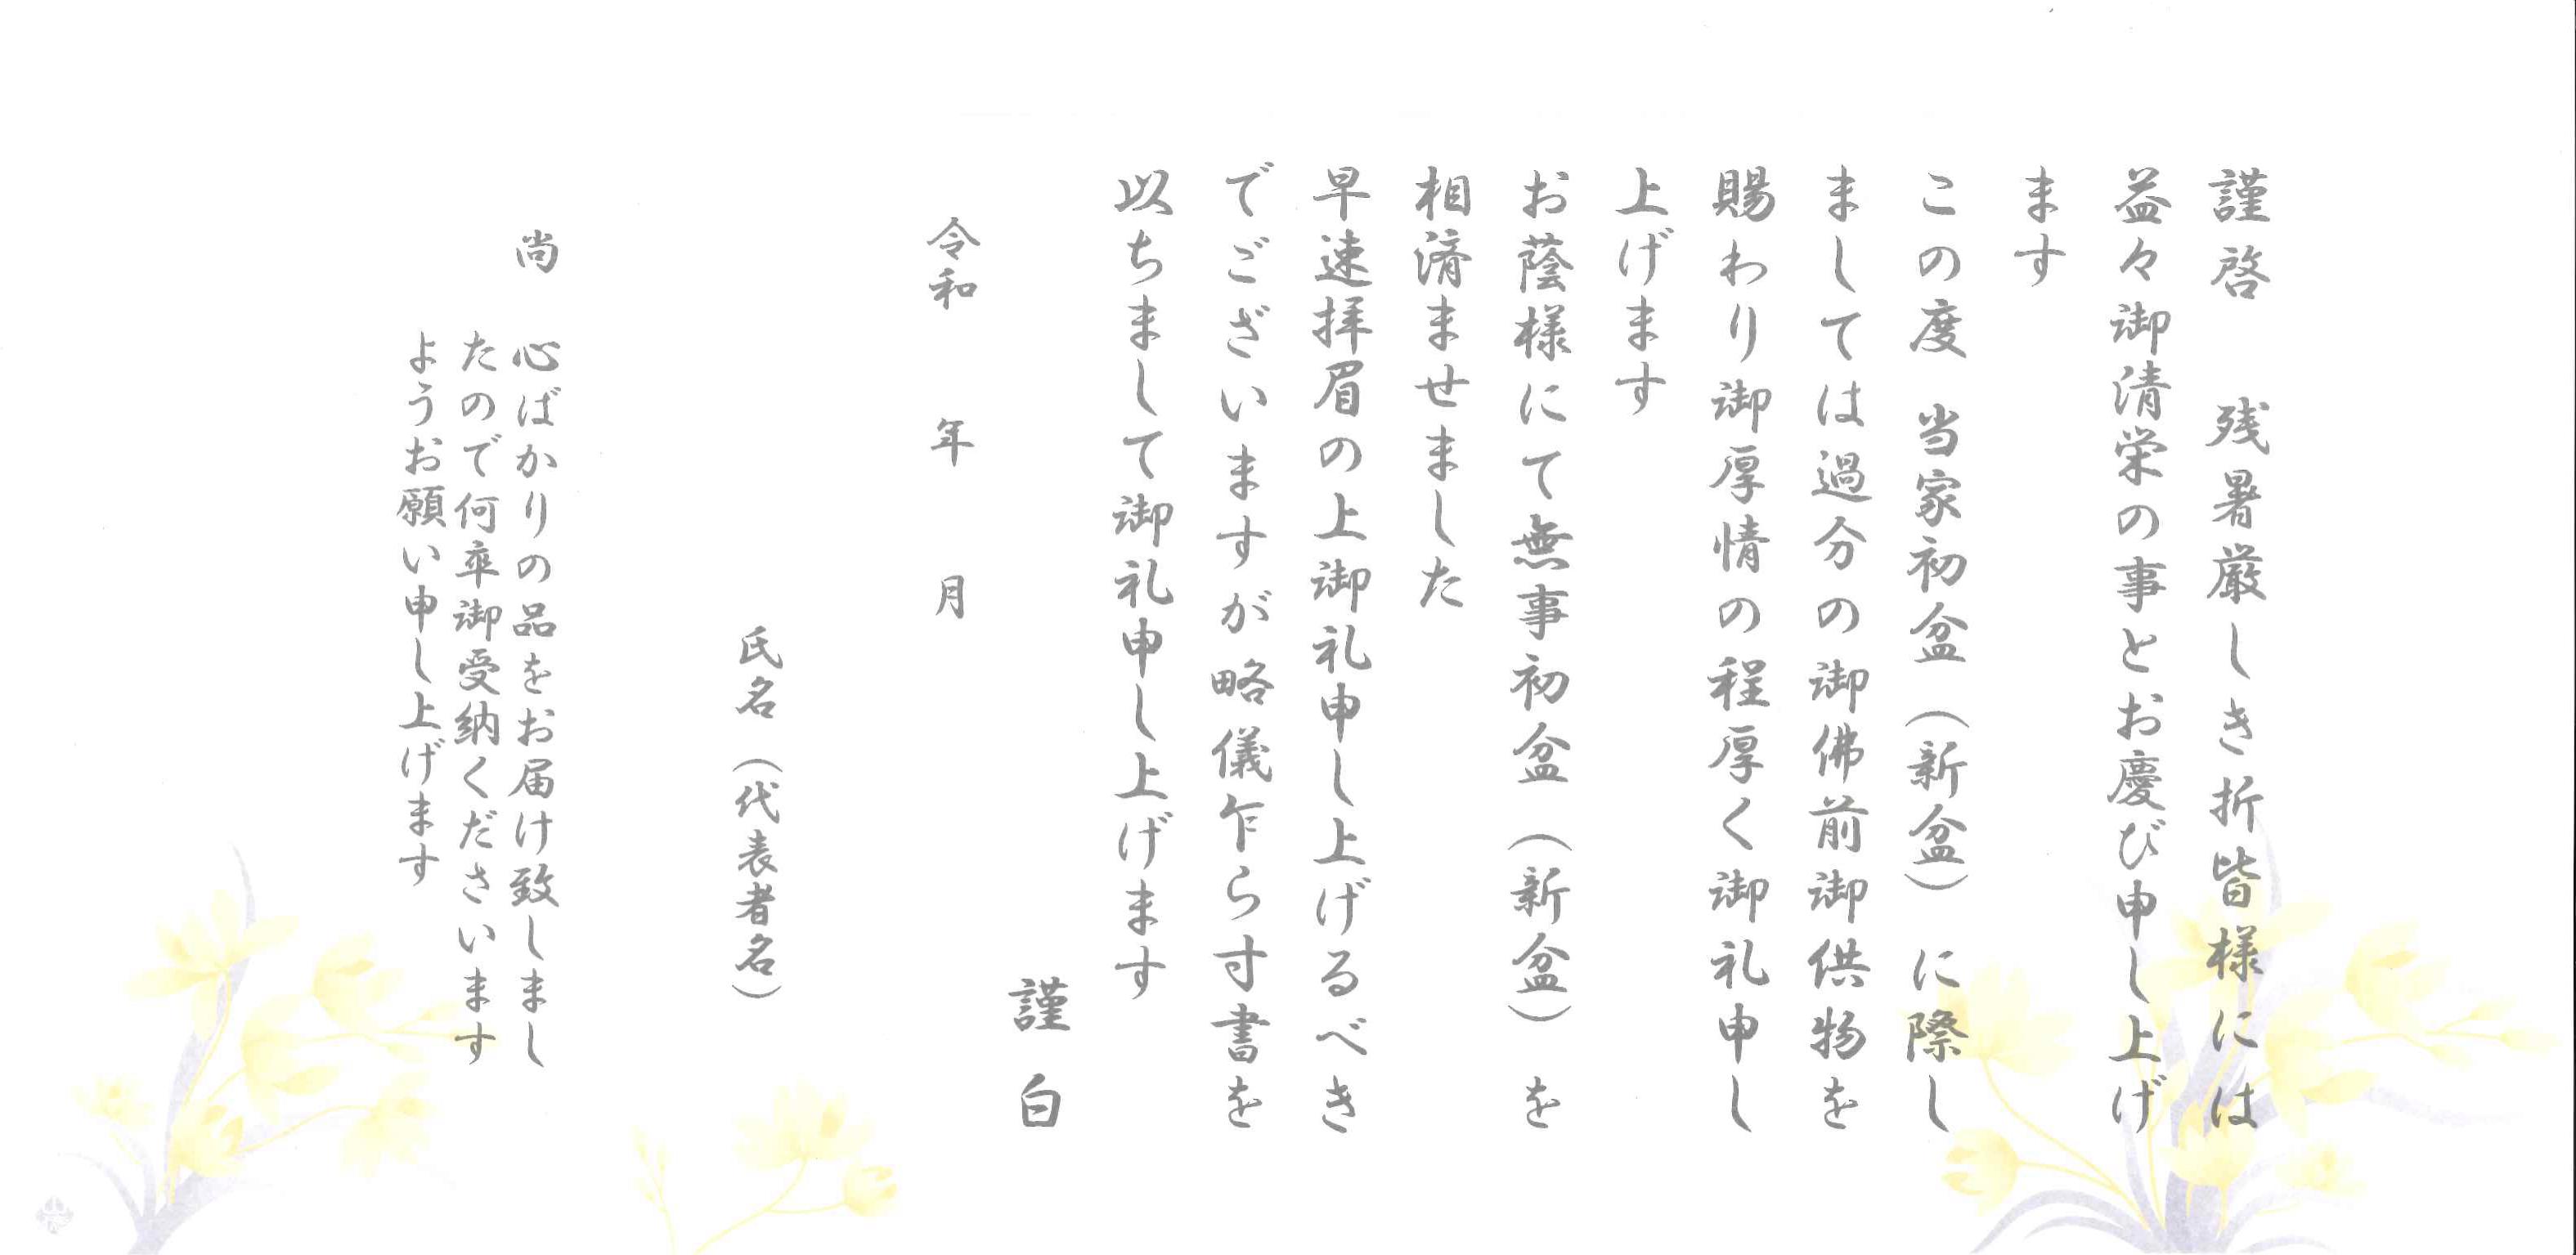 謹啓　残暑厳しき折皆様には
益々御清栄の事とお慶び申し上げ
ます
この度　当家初盆（新盆）に際し
ましては過分の御佛前御供物を
賜わり御厚情の程厚く御礼申し
上げます
お蔭様にて無事初盆（新盆）を
相済ませました
早速拝眉の上御礼申し上げるべき
でございますが略儀乍ら寸書を
以ちまして御礼申し上げます
謹　白
令和　　年　　月
氏名（代表者名）
尚　心ばかりの品をお届け致しまし
たので何卒御受納くださいます
ようお願い申し上げます